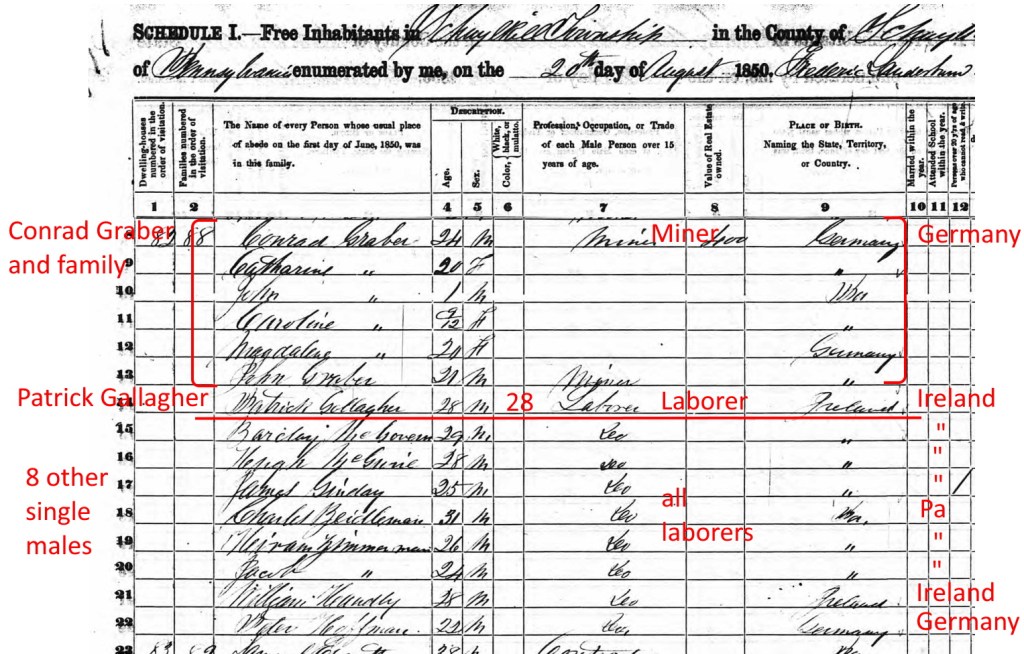 SCHEDULE I.—Free Inhabitants in Schuylkill Township in the County of Schuylk
of Pennsylvania enumerated by me, on the 20th day of August 1850. Frederic
Dwelling-houses numbered in the order of visitation.
Families numbered in the order of visitation.
The Name of every Person whose usual place of abode on the first day of June, 1850, was in this family.
DESCRIPTION.
Age.
Sex.
White, black, or mulatto.
Color,
Profession, Occupation, or Trade of each Male Person over 15 years of age.
Value of Real Estate owned.
PLACE OF BIRTH.
Naming the State, Territory, or Country.
Married within the year.
Attended School within the year.
Persons over 20 y'rs of age who cannot read & write.
1 2 3 4 5 6 7 8 9 10 11 12
Conrad Graber and family
82 88 Conrad Graber 24 M Miner Miner 400 Germany Germany
9 Catharine " 20 F "
10 John " 1 M Pa
11 Caroline " 9/12 F "
12 Magdalena " 20 F Germany
13 John Graber 21 M Miner "
Patrick Gallagher
14 Patrick Gallagher 28 M 28 Laborer Laborer Ireland Ireland
15 Barclay McGovern 29 M Do " "
16 Hugh McGuire 28 M Do " "
8 other single males
17 James 25 M Do " " 1
all laborers
18 Charles Beidleman 31 M Do Pa. Pa
19 Hiram Zimmerman 26 M Do " "
20 Jacob " 24 M Do " "
21 William Handly 28 M Do Ireland Ireland
22 Hoffman 22 M Do Germany Germany
23 83 89